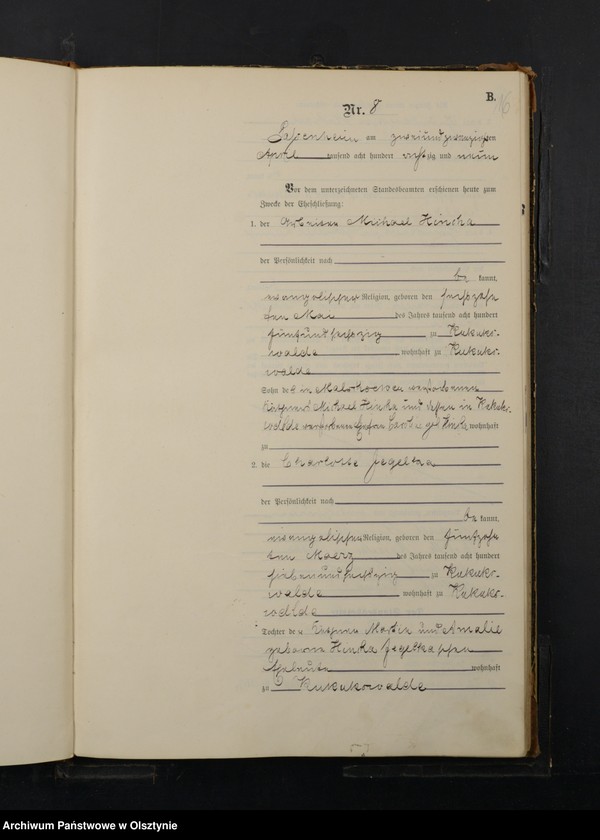 B. 16
Nr. 8
am zweiundzwanzigsten
April tausend acht hundert achtzig und neun
Vor dem unterzeichneten Standesbeamten erschienen heute zum
Zwecke der Eheschließung:
1. der Arbeiter Michael Hinska
der Persönlichkeit nach
be kannt,
evangelischer Religion, geboren den sechszehn
ten Mai des Jahres tausend acht hundert
fünf und sechszig zu Kukuks-
walde, wohnhaft zu Kukuks-
walde
Sohn des in verstorbenen
Käthners Michael und dessen in Kukuks-
walde verstorbenen Ehefrau geb. wohnhaft
zu
2. die Charlotte Jegelka
der Persönlichkeit nach
be kannt,
evangelischer Religion, geboren den fünfzehn
ten Maerz des Jahres tausend acht hundert
sieben und sechszig zu Kukuks-
walde, wohnhaft zu Kukuks-
walde
Tochter der Käthner Martin und Amalie
geborene Hinska Jegelkaschen
Eheleute wohnhaft
zu Kukukswalde
Archiwum Państwowe w Olsztynie